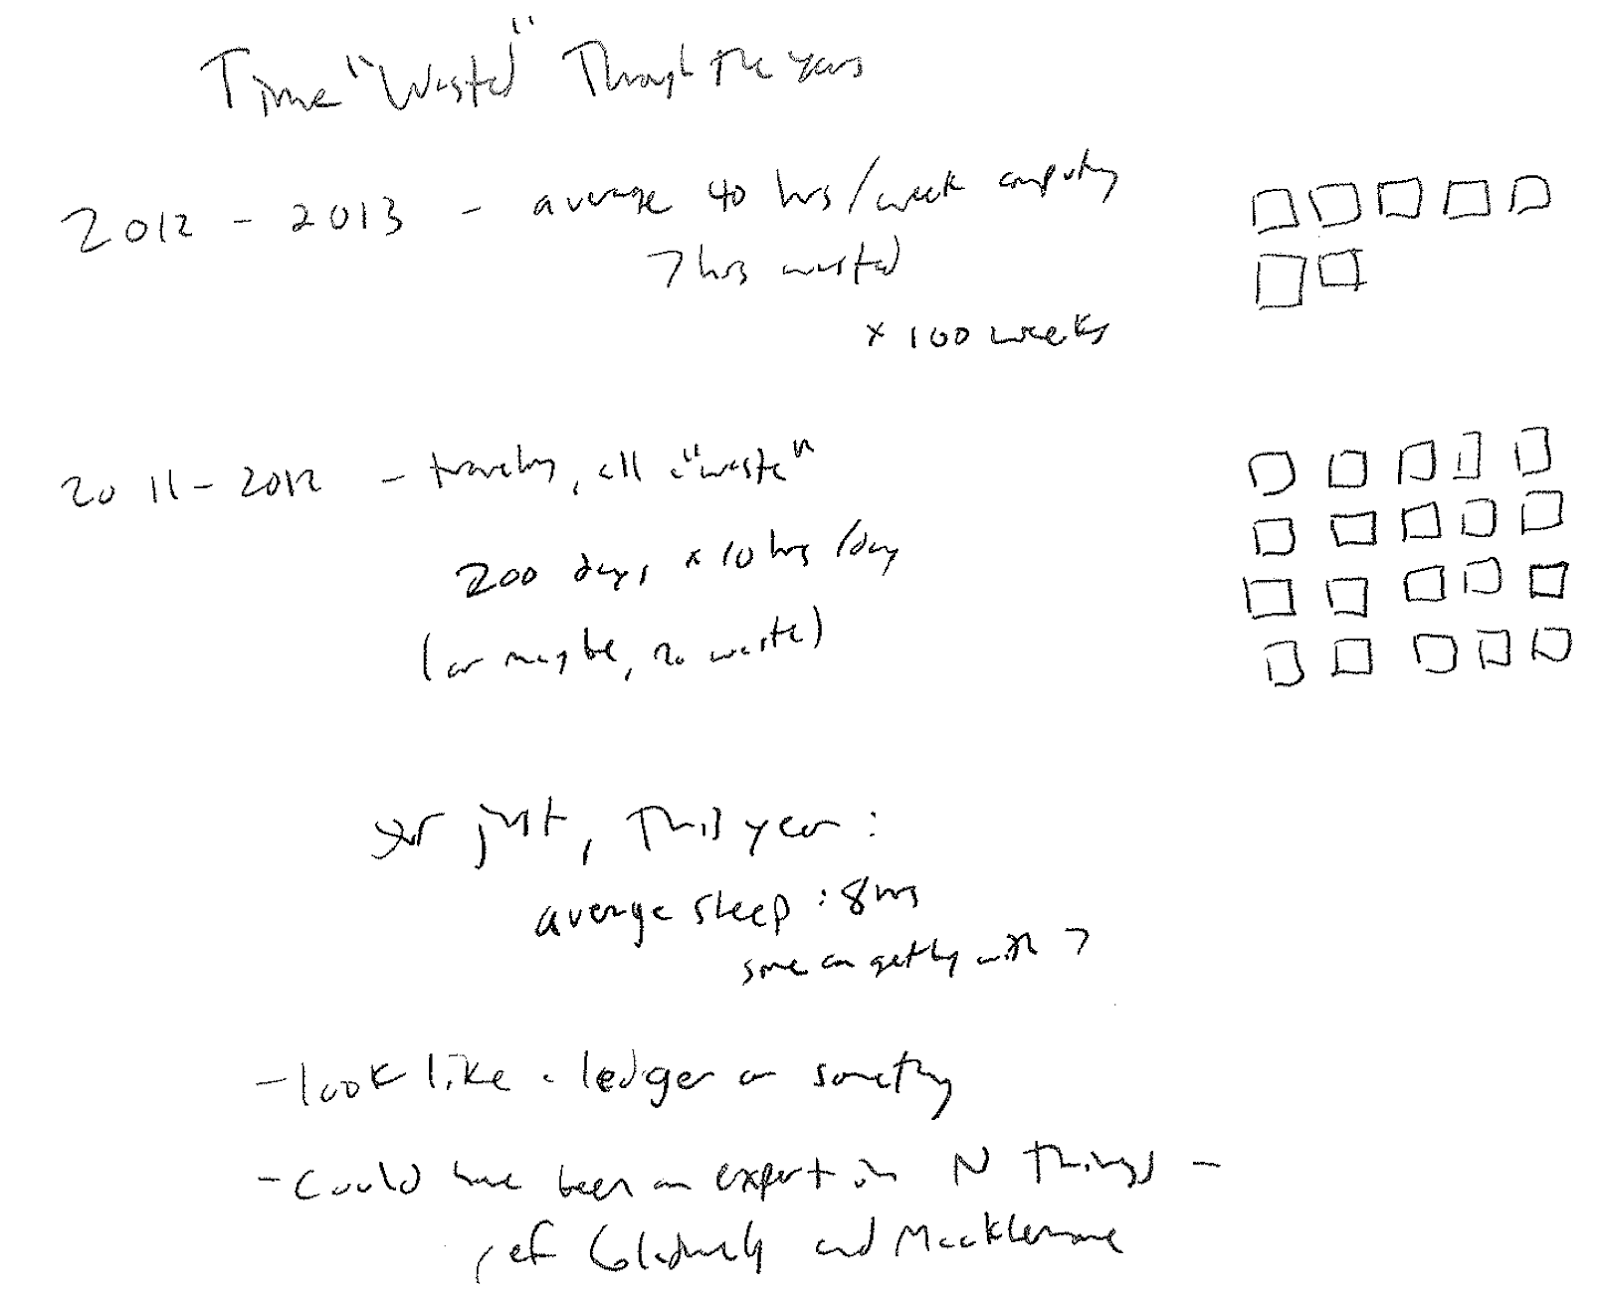 Time "Wasted" Through the years
2012 - 2013 - average 40 hrs/week computing
7 hrs wasted
x 100 weeks
2011 - 2012 - traveling, all "waste"
200 days x 10 hrs /day
(or maybe, no waste)
or just, This year:
average sleep: 8hrs
some can get by with 7
- look like a ledger or something
- Could have been an expert in N Things -
ref Gladwell and Macklemore